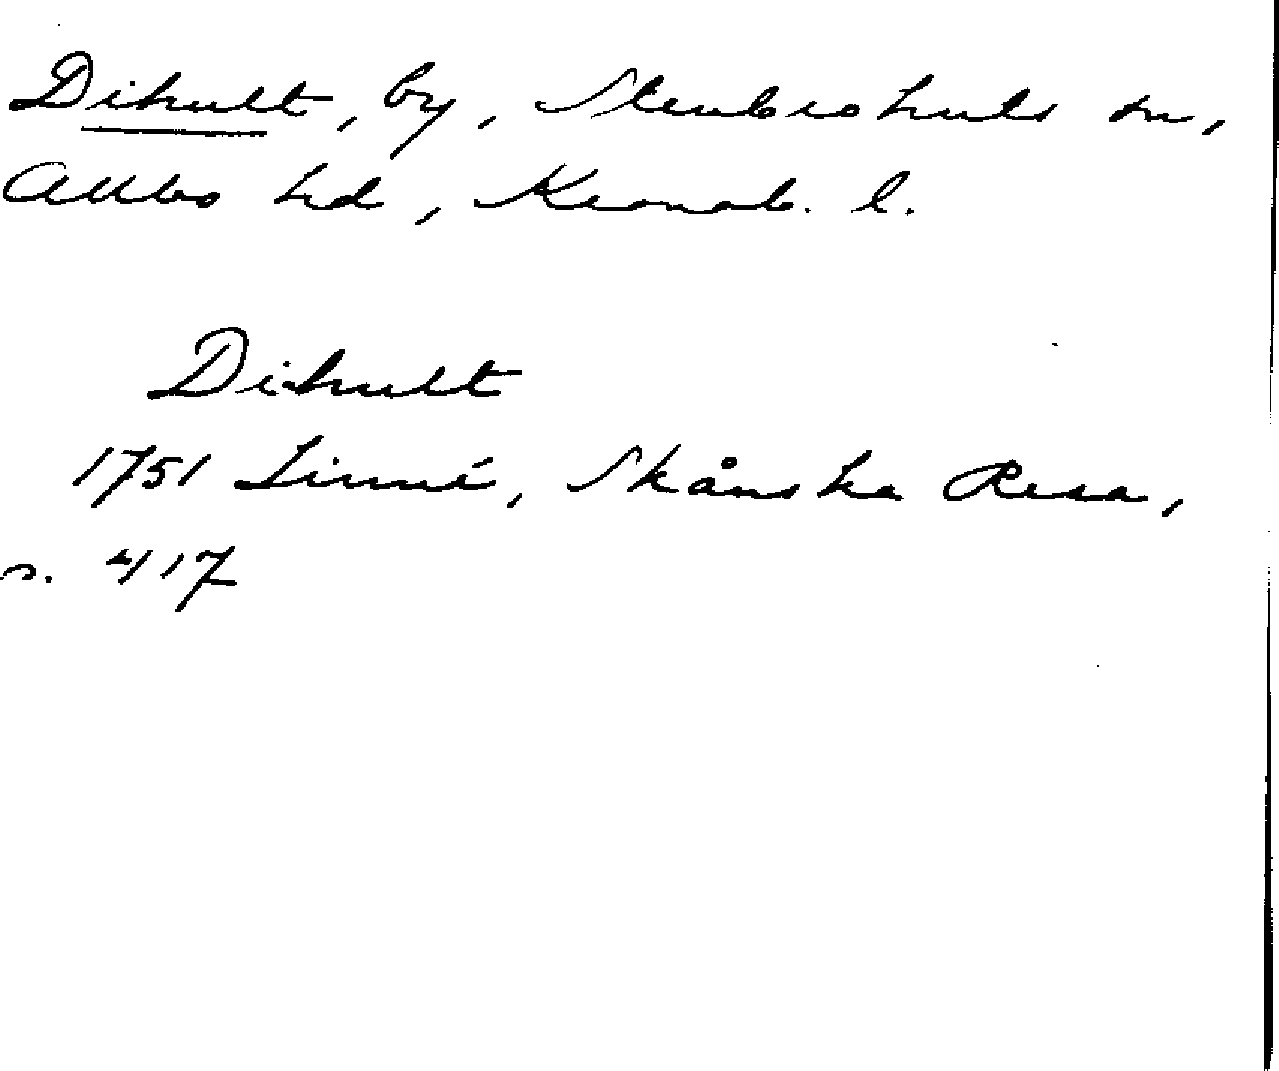 Dihult, by, Stenbrohults sn,
Allbo hd, Kronob. l.
Dihult
1751 Linné, Skånska Resa,
s. 417